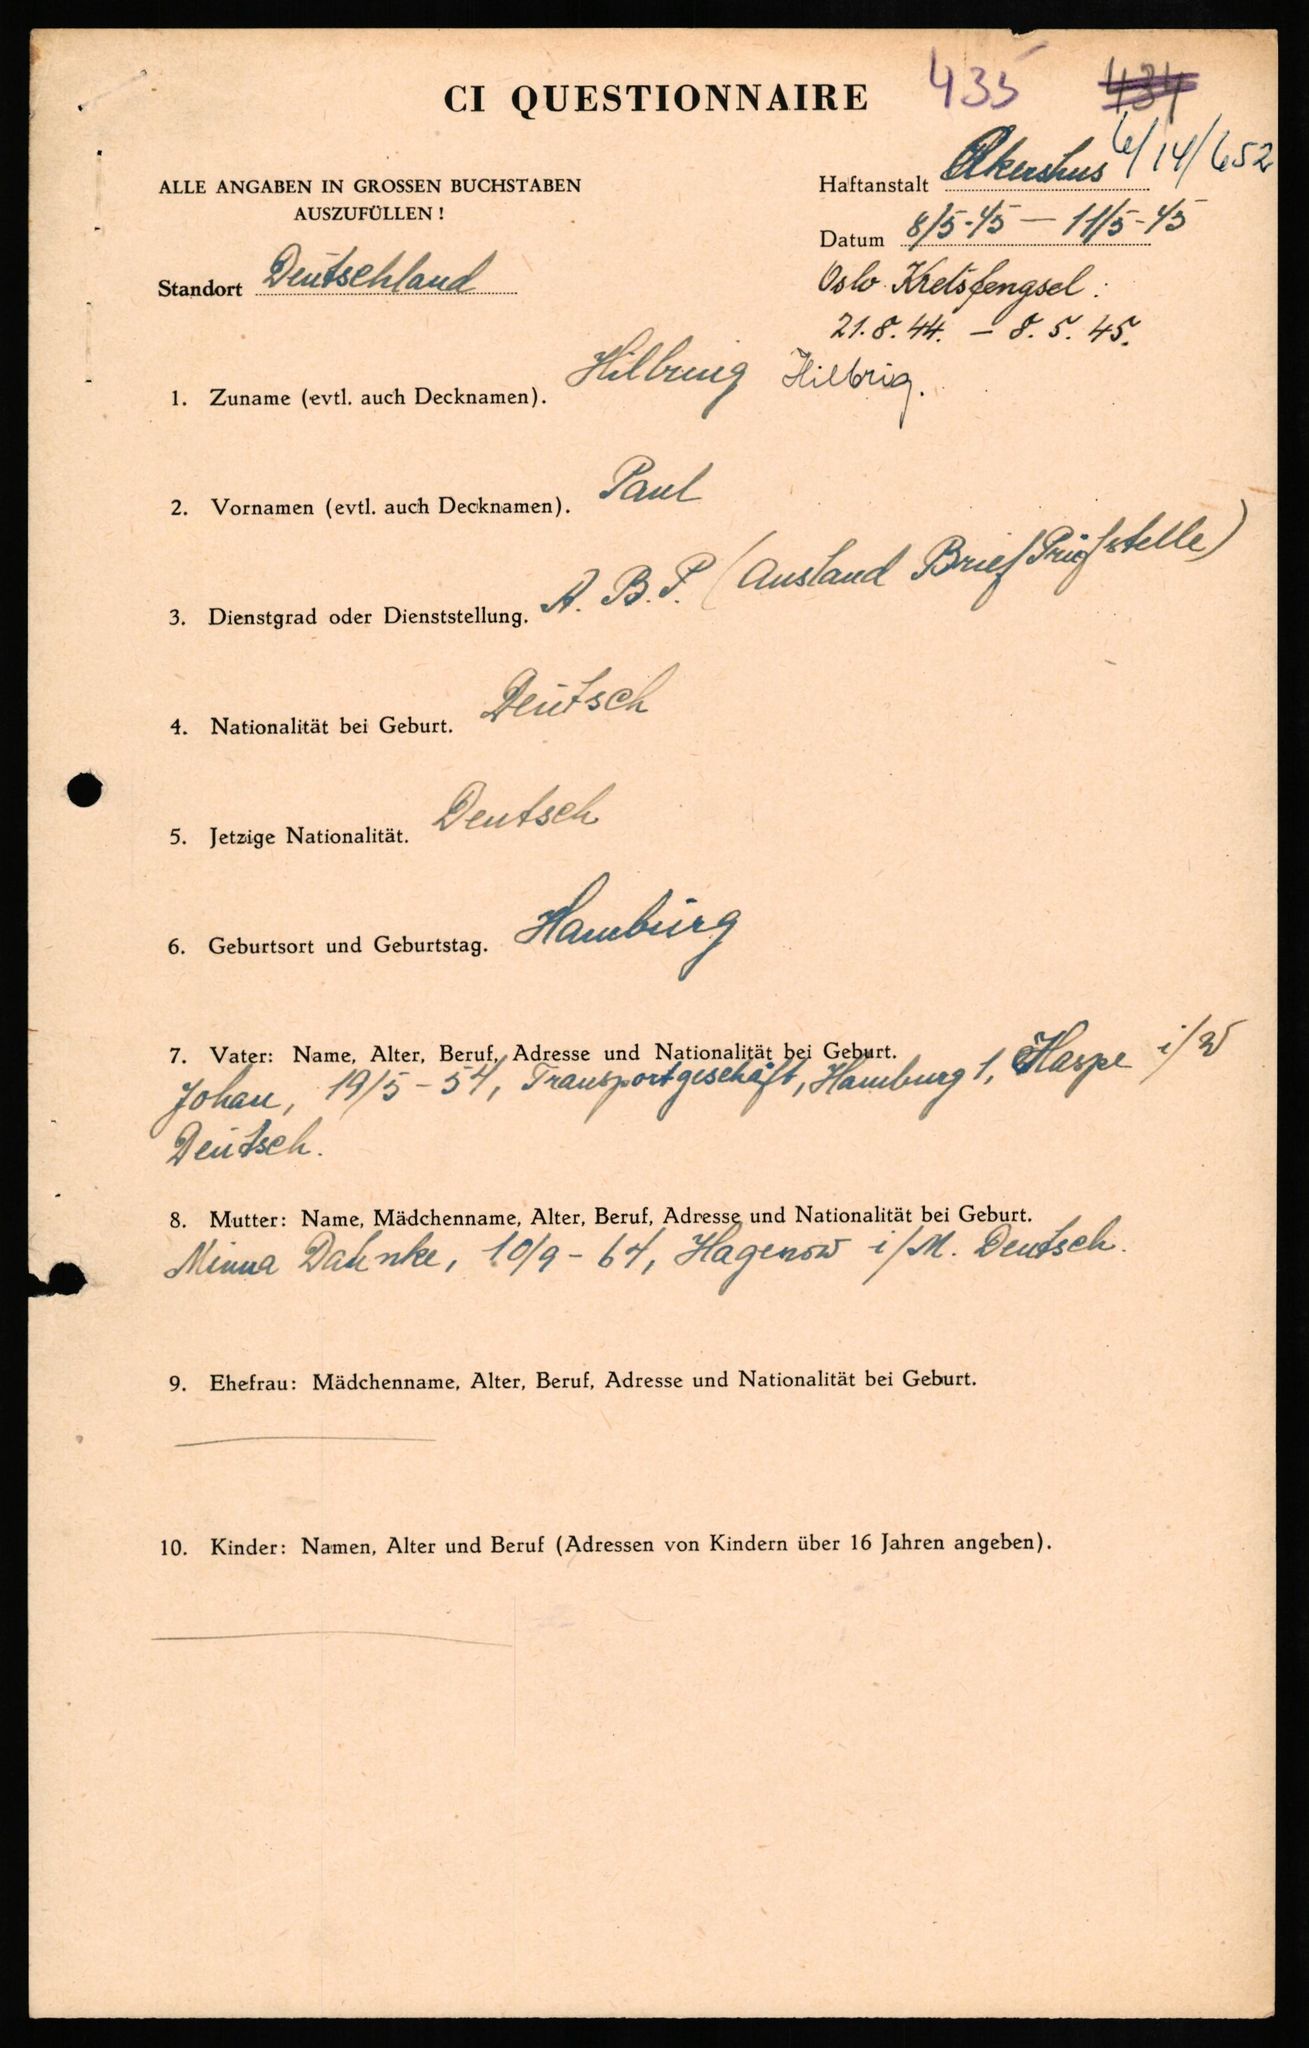 435 434
CI QUESTIONNAIRE
6/14/652
ALLE ANGABEN IN GROSSEN BUCHSTABEN
AUSZUFÜLLEN!
Haftanstalt Akershus
Datum 8/5-45 — 11/5-45
Standort Deutschland
Oslo Kretsfengsel:
21.8.44. – 8.5.45.
1. Zuname (evtl. auch Decknamen). Hilbrig Hilbrig.
2. Vornamen (evtl. auch Decknamen). Paul
3. Dienstgrad oder Dienststellung. A. B. P. (Ausland Brief Prüfstelle)
4. Nationalität bei Geburt. Deutsch
5. Jetzige Nationalität. Deutsch
6. Geburtsort und Geburtstag. Hamburg
7. Vater: Name, Alter, Beruf, Adresse und Nationalität bei Geburt.
Johan, 19/5-54, Transportgeschäft, Hamburg 1, Haspe i/W
Deutsch.
8. Mutter: Name, Mädchenname, Alter, Beruf, Adresse und Nationalität bei Geburt.
Minna Dahnke, 10/9-64, Hagenow i/M. Deutsch.
9. Ehefrau: Mädchenname, Alter, Beruf, Adresse und Nationalität bei Geburt.
10. Kinder: Namen, Alter und Beruf (Adressen von Kindern über 16 Jahren angeben).